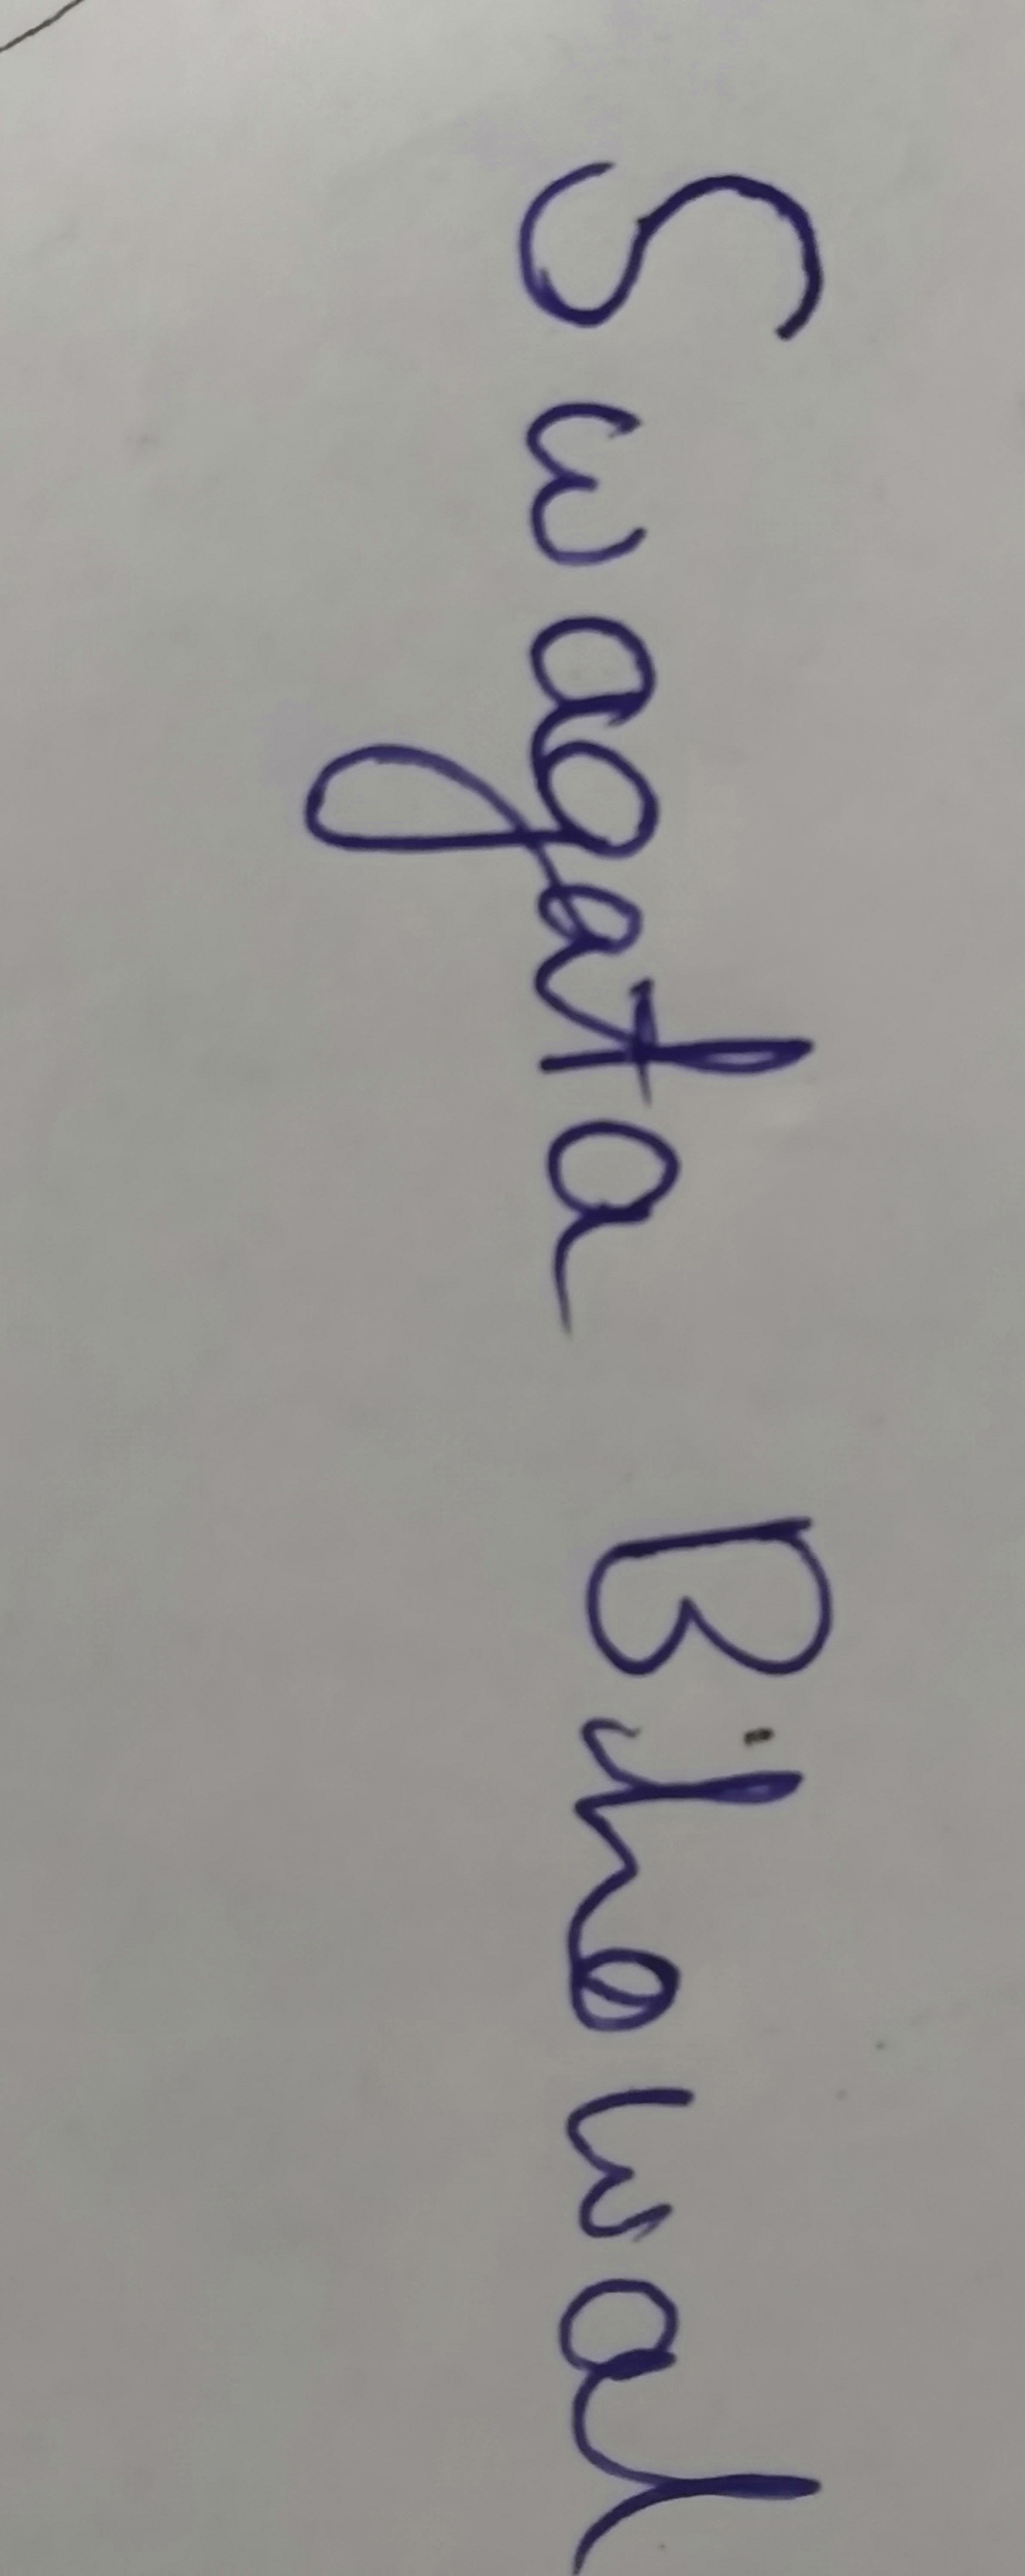 Swagata Bihowal